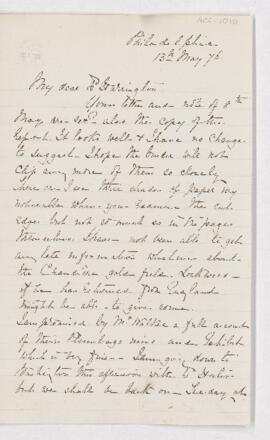 Philadelphia
13th May 76
My dear Dr Harrington
Your letter and note of 8th
May are rec'd also the copy of the
report. It looks well & I have no change
to suggest. I hope the binder will not
clip any more of them so closely
here on. I see three shades of paper very
noticeable when you examine the cut
edge but not so much so in the pages
themselves. I have not been able to get
any late information whatever about
the Chaudière gold field. Lockwood
if he has returned from England
might be able to give some.
I am promised by Mr a full account
of their mine and Exhibit
which is very fine. I am going down to
Washington this afternoon with Dr
but we shall be back on Tuesday